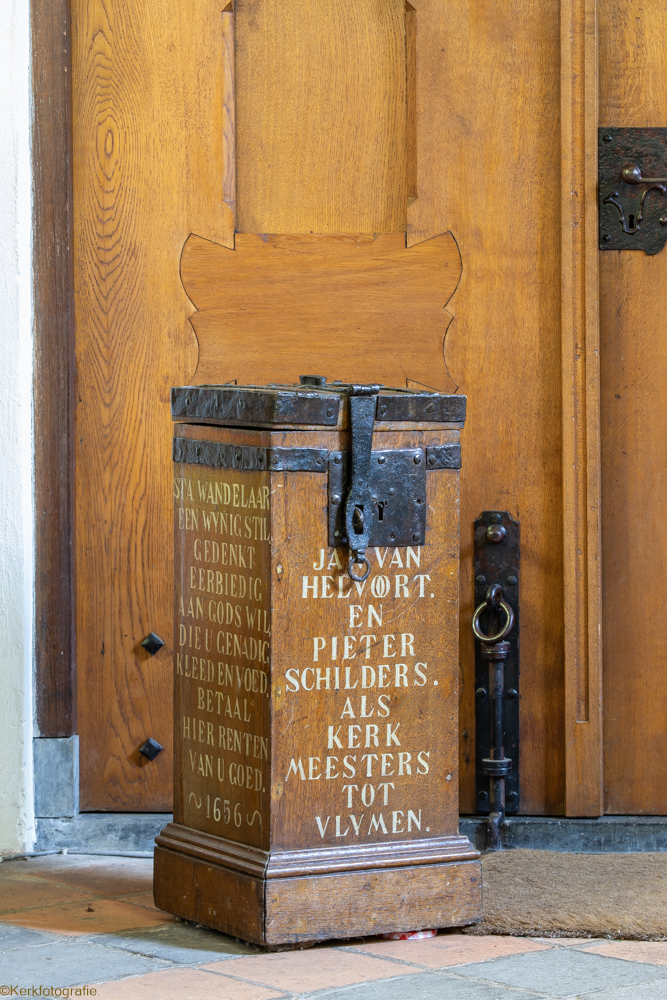 STA WANDELAAR
EEN WYNIG STIL
GEDENKT
EERBIEDIG
AAN GODS WIL
DIE U GENADIG
KLEED EN VOED.
BETAAL
HIER RENTEN
VAN U GOED.
~ 1656 ~
JAN VAN
HELVOORT.
EN
PIETER
SCHILDERS.
ALS
KERK
MEESTERS
TOT
VLYMEN.
©Kerkfotografie